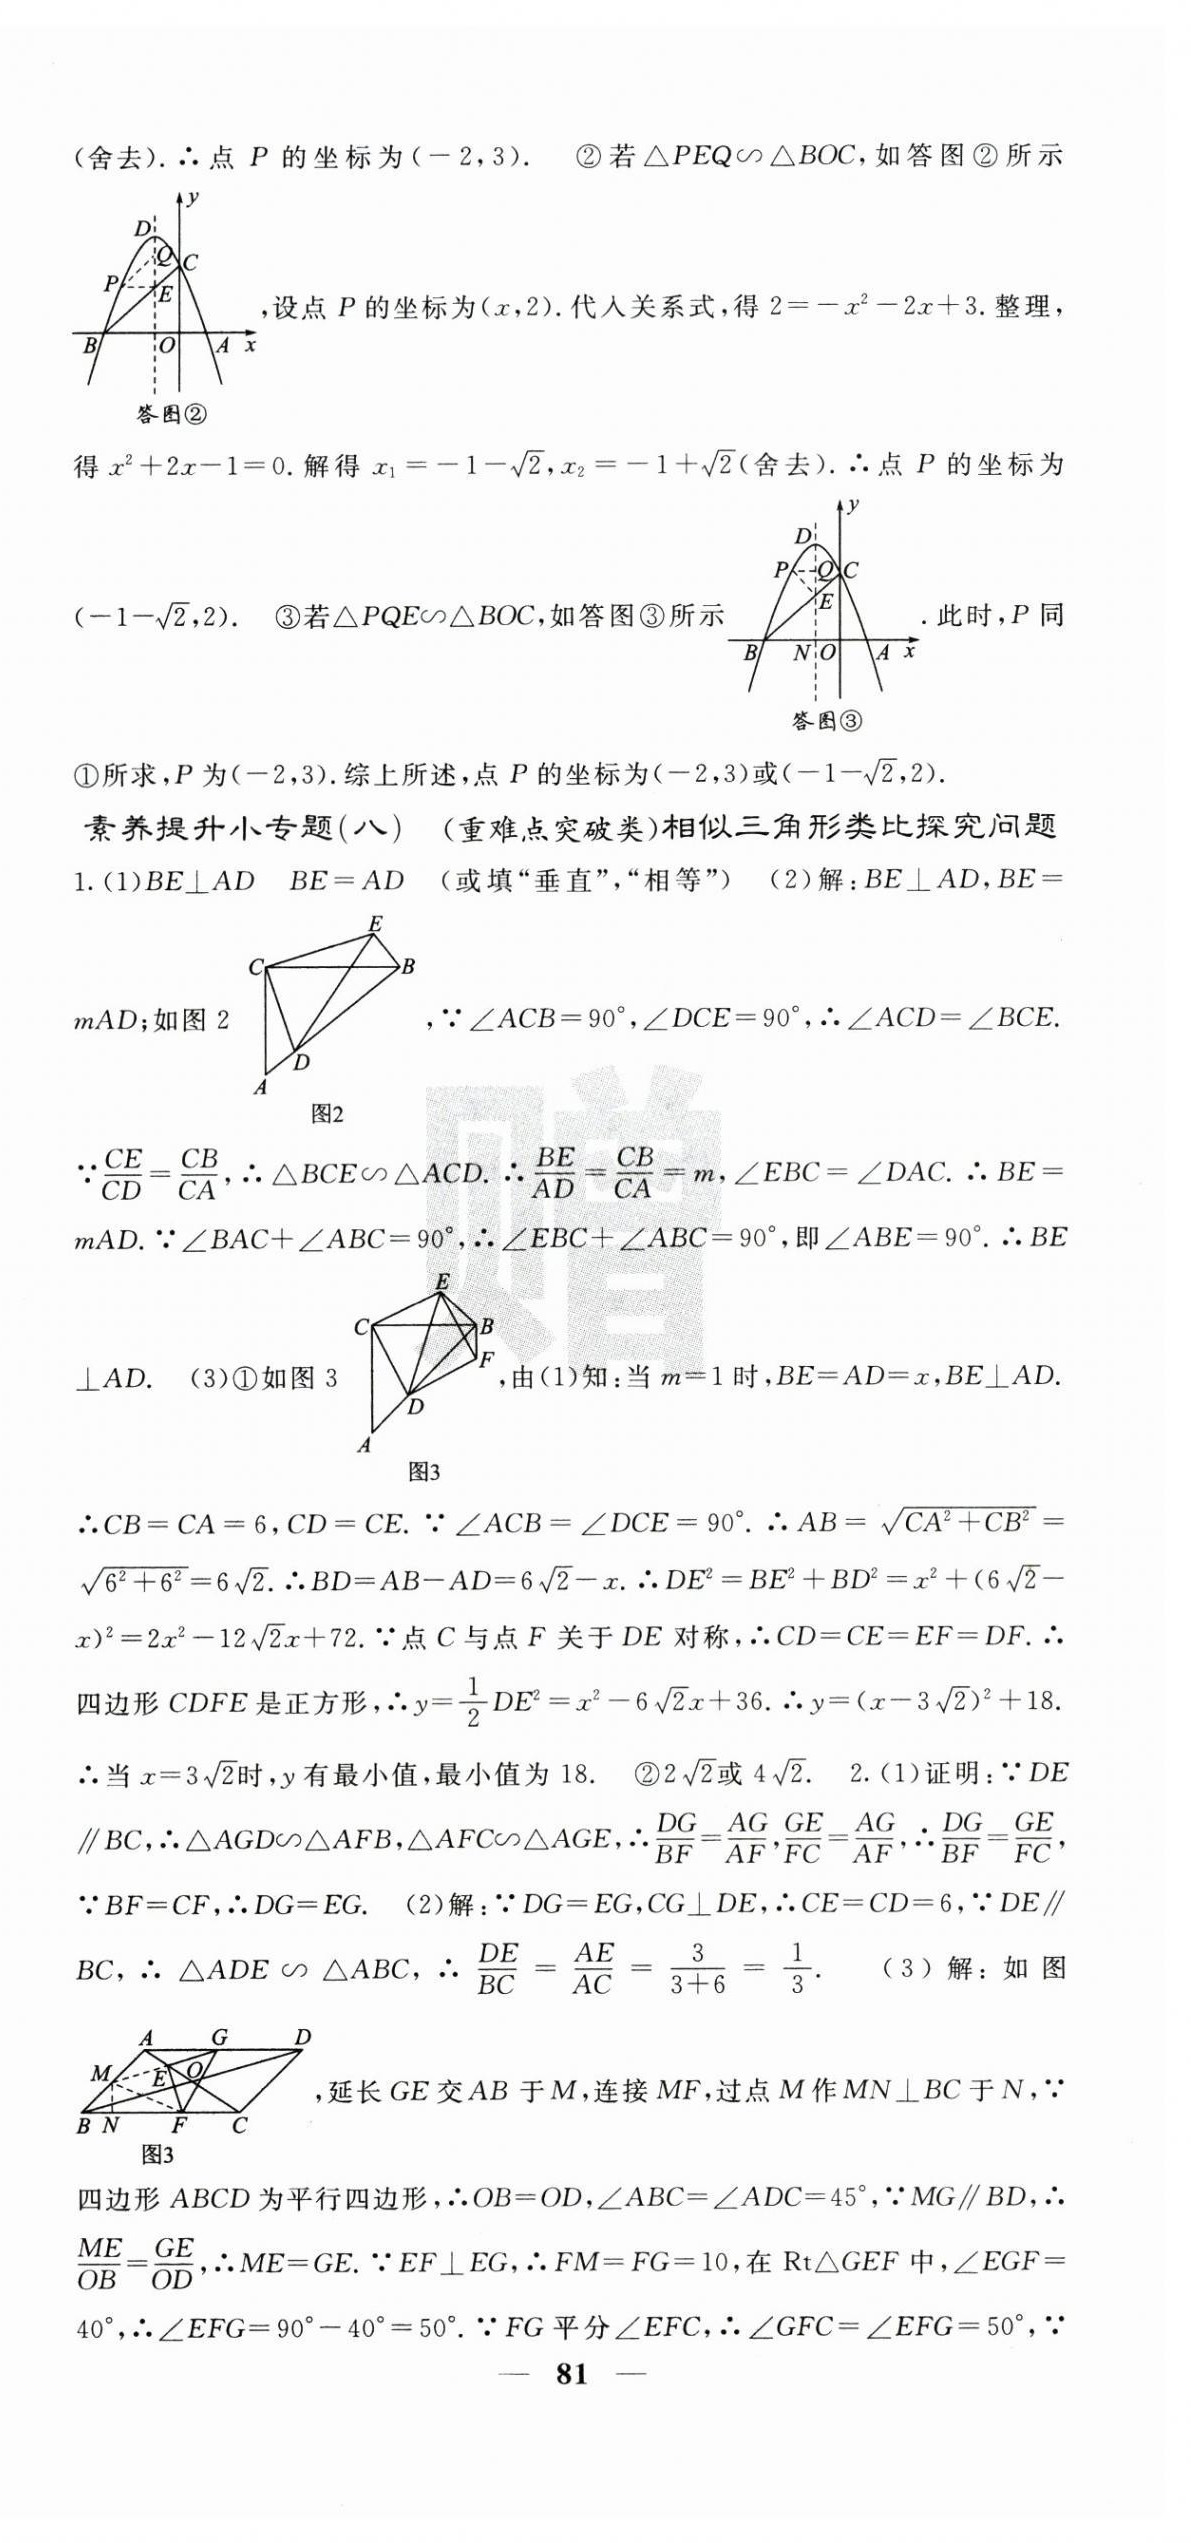 (舍去).∴点 P 的坐标为(－2,3). ②若△PEQ∽△BOC,如答图②所示
y
D
Q
C
P
E
B
O
A
x
答图②
,设点 P 的坐标为(x,2).代入关系式,得 2=－x²－2x+3.整理,
得 x²+2x－1=0.解得 x₁=－1－√2,x₂=－1+√2(舍去).∴点 P 的坐标为
y
D
P
Q
C
E
B
N
O
A
x
答图③
(－1－√2,2). ③若△PQE∽△BOC,如答图③所示 .此时,P 同
①所求,P 为(－2,3).综上所述,点 P 的坐标为(－2,3)或(－1－√2,2).
素养提升小专题(八) (重难点突破类)相似三角形类比探究问题
1.(1)BE⊥AD BE=AD (或填“垂直”,“相等”) (2)解:BE⊥AD,BE=
E
C
B
D
A
图2
mAD;如图 2 ,∵∠ACB=90°,∠DCE=90°,∴∠ACD=∠BCE.
∵CE/CD=CB/CA,∴△BCE∽△ACD.∴BE/AD=CB/CA=m,∠EBC=∠DAC.∴BE=
mAD.∵∠BAC+∠ABC=90°,∴∠EBC+∠ABC=90°,即∠ABE=90°.∴BE
E
C
B
F
D
A
图3
⊥AD. (3)①如图 3 ,由(1)知:当 m=1 时,BE=AD=x,BE⊥AD.
∴CB=CA=6,CD=CE.∵∠ACB=∠DCE=90°.∴AB=√(CA²+CB²)=
√(6²+6²)=6√2.∴BD=AB－AD=6√2－x.∴DE²=BE²+BD²=x²+(6√2－
x)²=2x²－12√2x+72.∵点 C 与点 F 关于 DE 对称,∴CD=CE=EF=DF.∴
四边形 CDFE 是正方形,∴y=1/2DE²=x²－6√2x+36.∴y=(x－3√2)²+18.
∴当 x=3√2时,y 有最小值,最小值为 18. ②2√2或 4√2. 2.(1)证明:∵DE
∥BC,∴△AGD∽△AFB,△AFC∽△AGE,∴DG/BF=AG/AF,GE/FC=AG/AF,∴DG/BF=GE/FC,
∵BF=CF,∴DG=EG. (2)解:∵DG=EG,CG⊥DE,∴CE=CD=6,∵DE∥
BC,∴△ADE∽△ABC,∴DE/BC=AE/AC=3/(3+6)=1/3. (3)解:如图
A
G
D
M
E
O
B
N
F
C
图3
,延长 GE 交 AB 于 M,连接 MF,过点 M 作 MN⊥BC 于 N,∵
四边形 ABCD 为平行四边形,∴OB=OD,∠ABC=∠ADC=45°,∵MG∥BD,∴
ME/OB=GE/OD,∴ME=GE.∵EF⊥EG,∴FM=FG=10,在 Rt△GEF 中,∠EGF=
40°,∴∠EFG=90°－40°=50°.∵FG 平分∠EFC,∴∠GFC=∠EFG=50°,∵
— 81 —